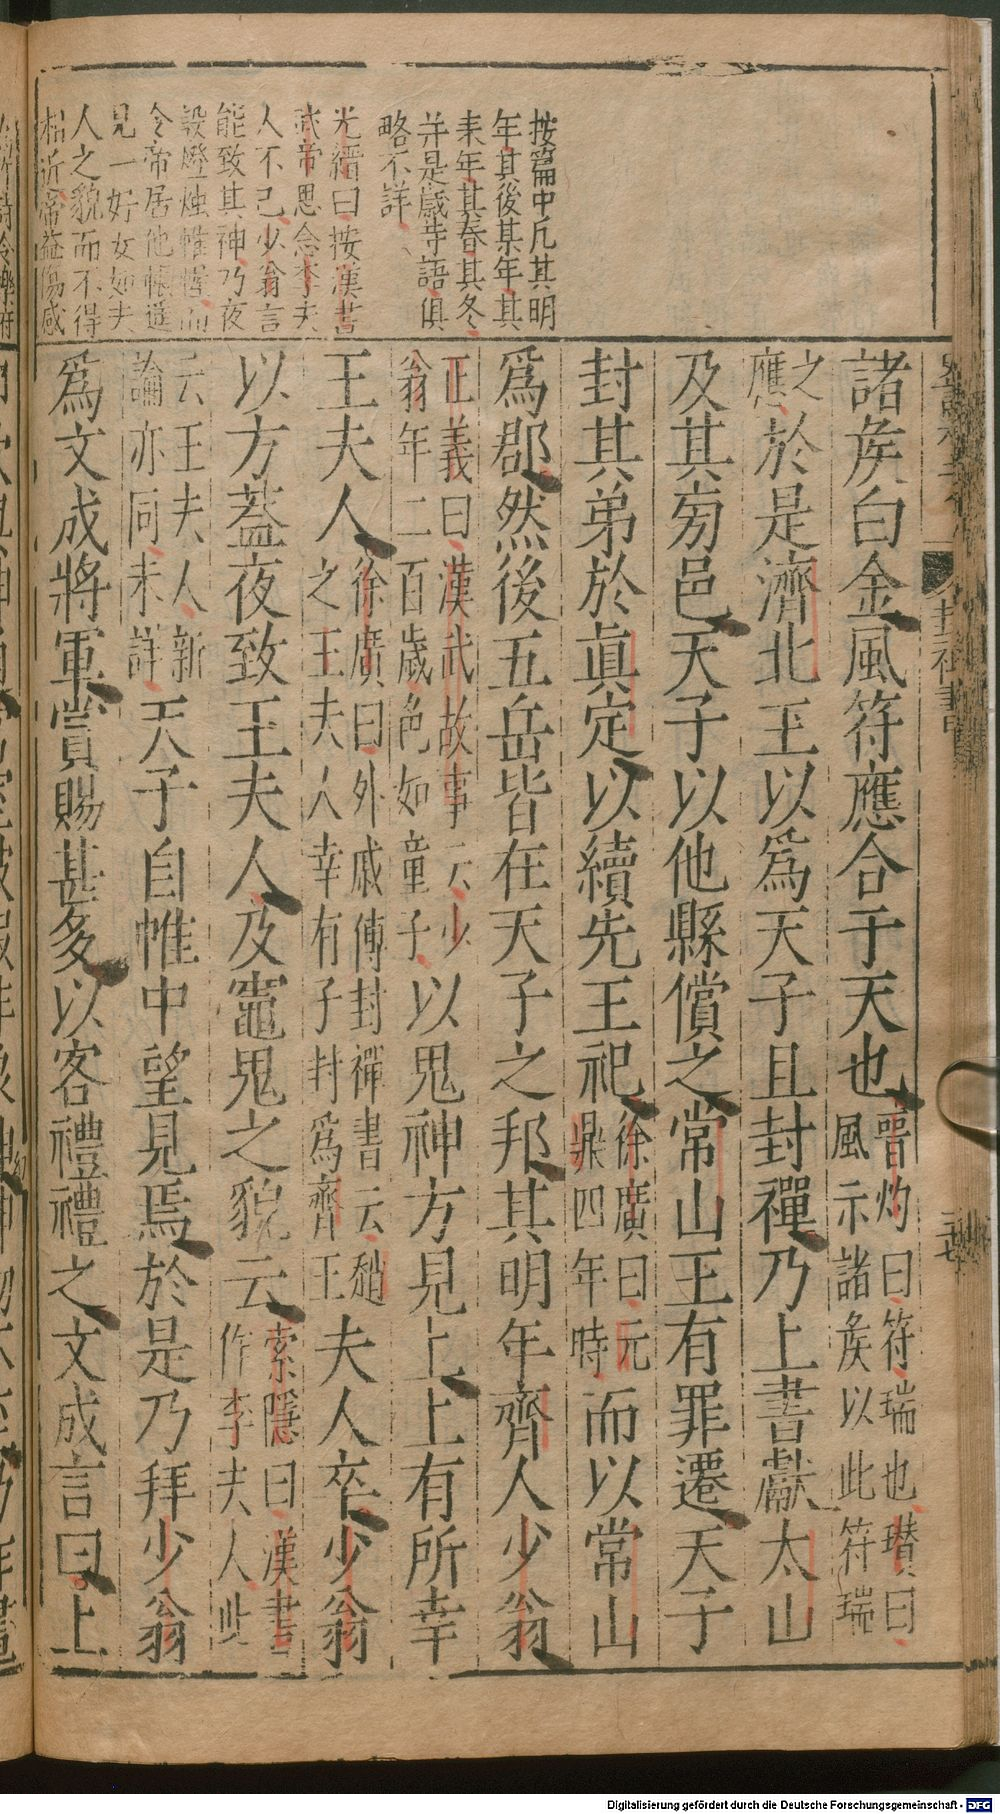 按篇中凡其明
年其後某年其
来年其春其冬
并是歲等語俱
略不詳
光縉曰按漢書
武帝思念李夫
人不已少翁言
能致其神乃夜
設燈燭帷幄而
令帝居他帳遥
見一好女如夫
人之貌而不得
相近帝益傷感
封禪書
諸矦白金風符應合于天也晋灼曰符瑞也瓉曰
風示諸矦以此符瑞
之
應於是濟北王以爲天子且封禪乃上書獻太山
及其㫄邑天子以他縣償之常山王有罪遷天子
封其弟於眞定以續先王祀徐廣曰元
鼎四年時而以常山
爲郡然後五岳皆在天子之邦其明年齊人少翁
正義曰漢武故事云少
翁年二百歲色如童子以鬼神方見上上有所幸
王夫人徐廣曰外戚傳封禪書云趙
之王夫人幸有子封爲齊王夫人卒少翁
以方蓋夜致王夫人及竈鬼之貌云索隱曰漢書
作李夫人此
云王夫人新
論亦同未詳天子自帷中望見焉於是乃拜少翁
爲文成將軍賞賜甚多以客禮禮之文成言曰上
Digitalisierung gefördert durch die Deutsche Forschungsgemeinschaft - DFG